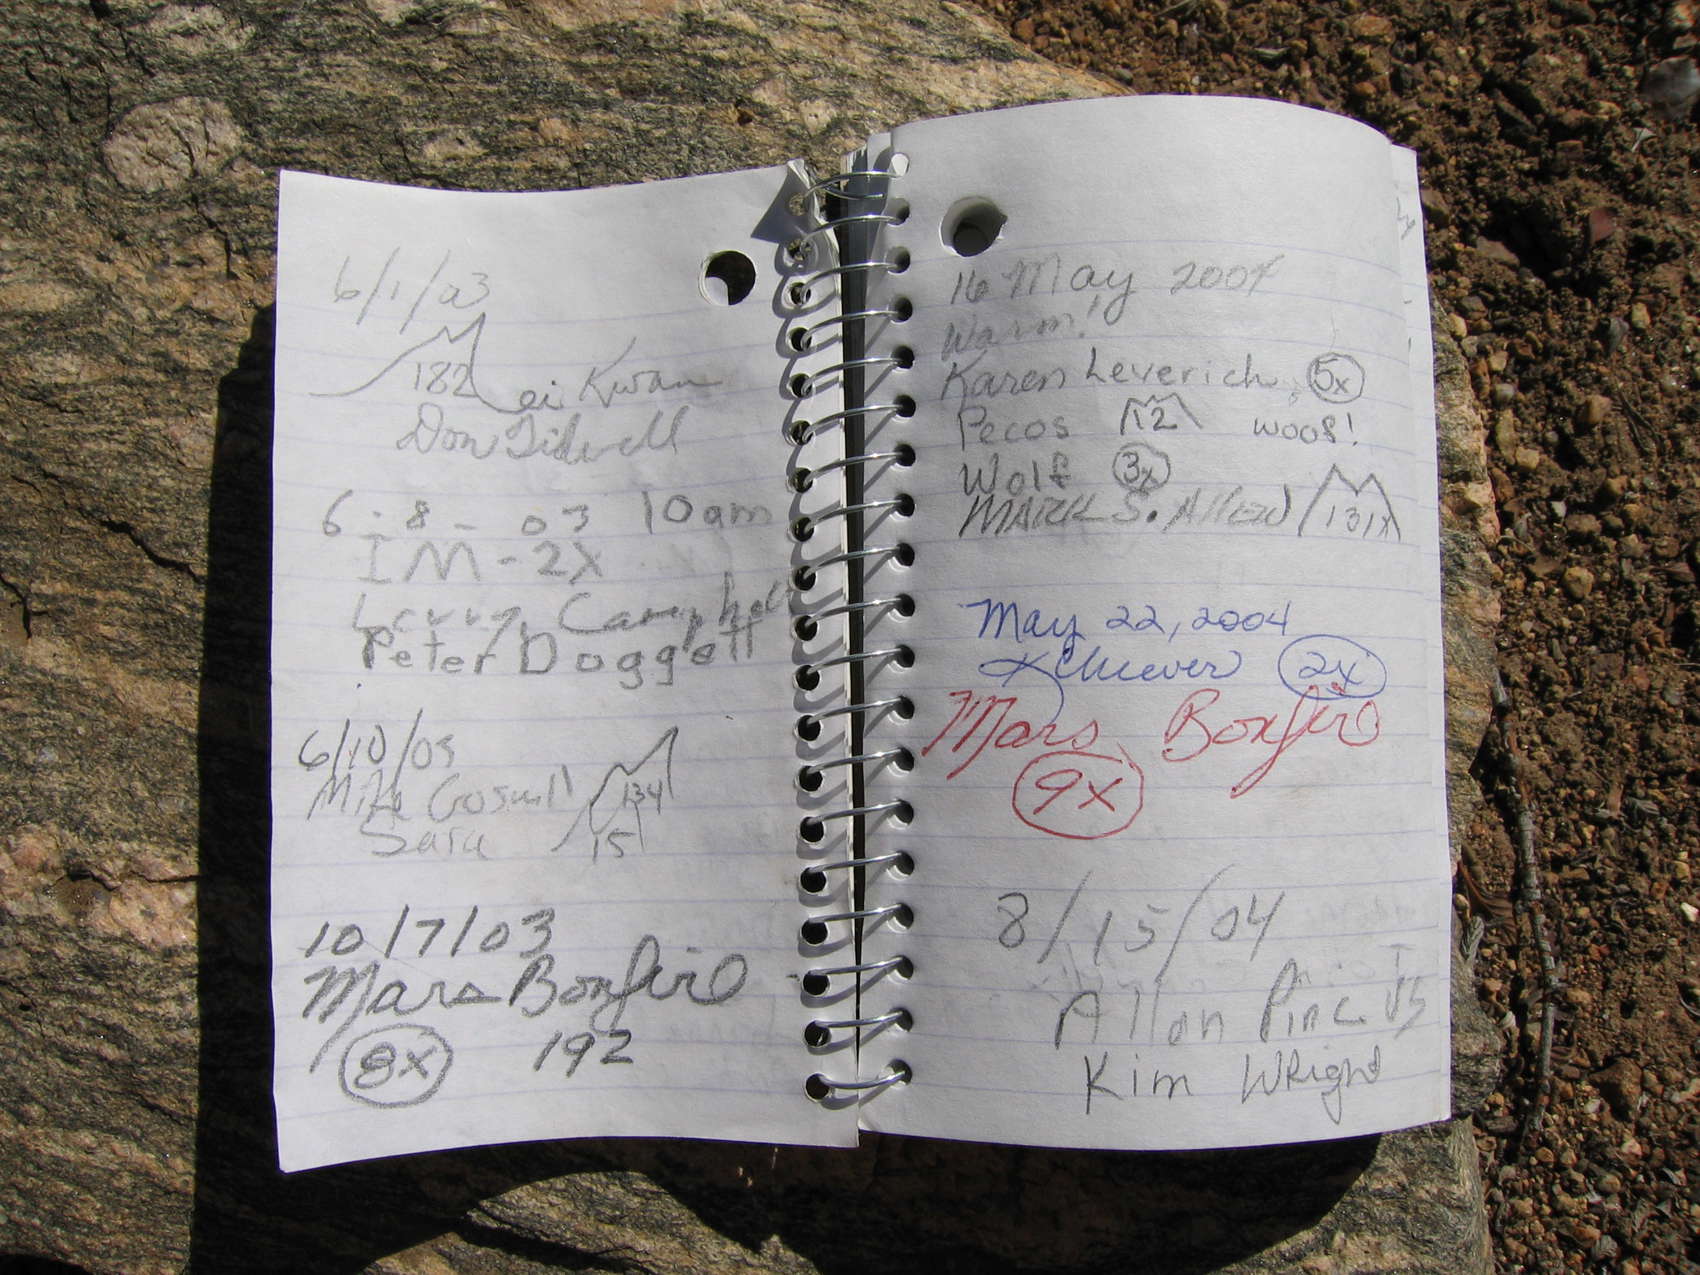 6/1/03
182 Lei Kwan
Don Tidwell
6-8-03 10am
IM-2X
Larry Campbell
Peter Doggett
6/10/03
Mike Goswell 134
Sara 15
10/7/03
Mars Bonfire
8x 192
16 May 2004
Warm!
Karen Leverich, 5x
Pecos 12 woof!
Wolf 3x
MARK S. Allen 131x
May 22, 2004
2x
Mars Bonfire
9x
8/15/04
Allan
Kim Wright